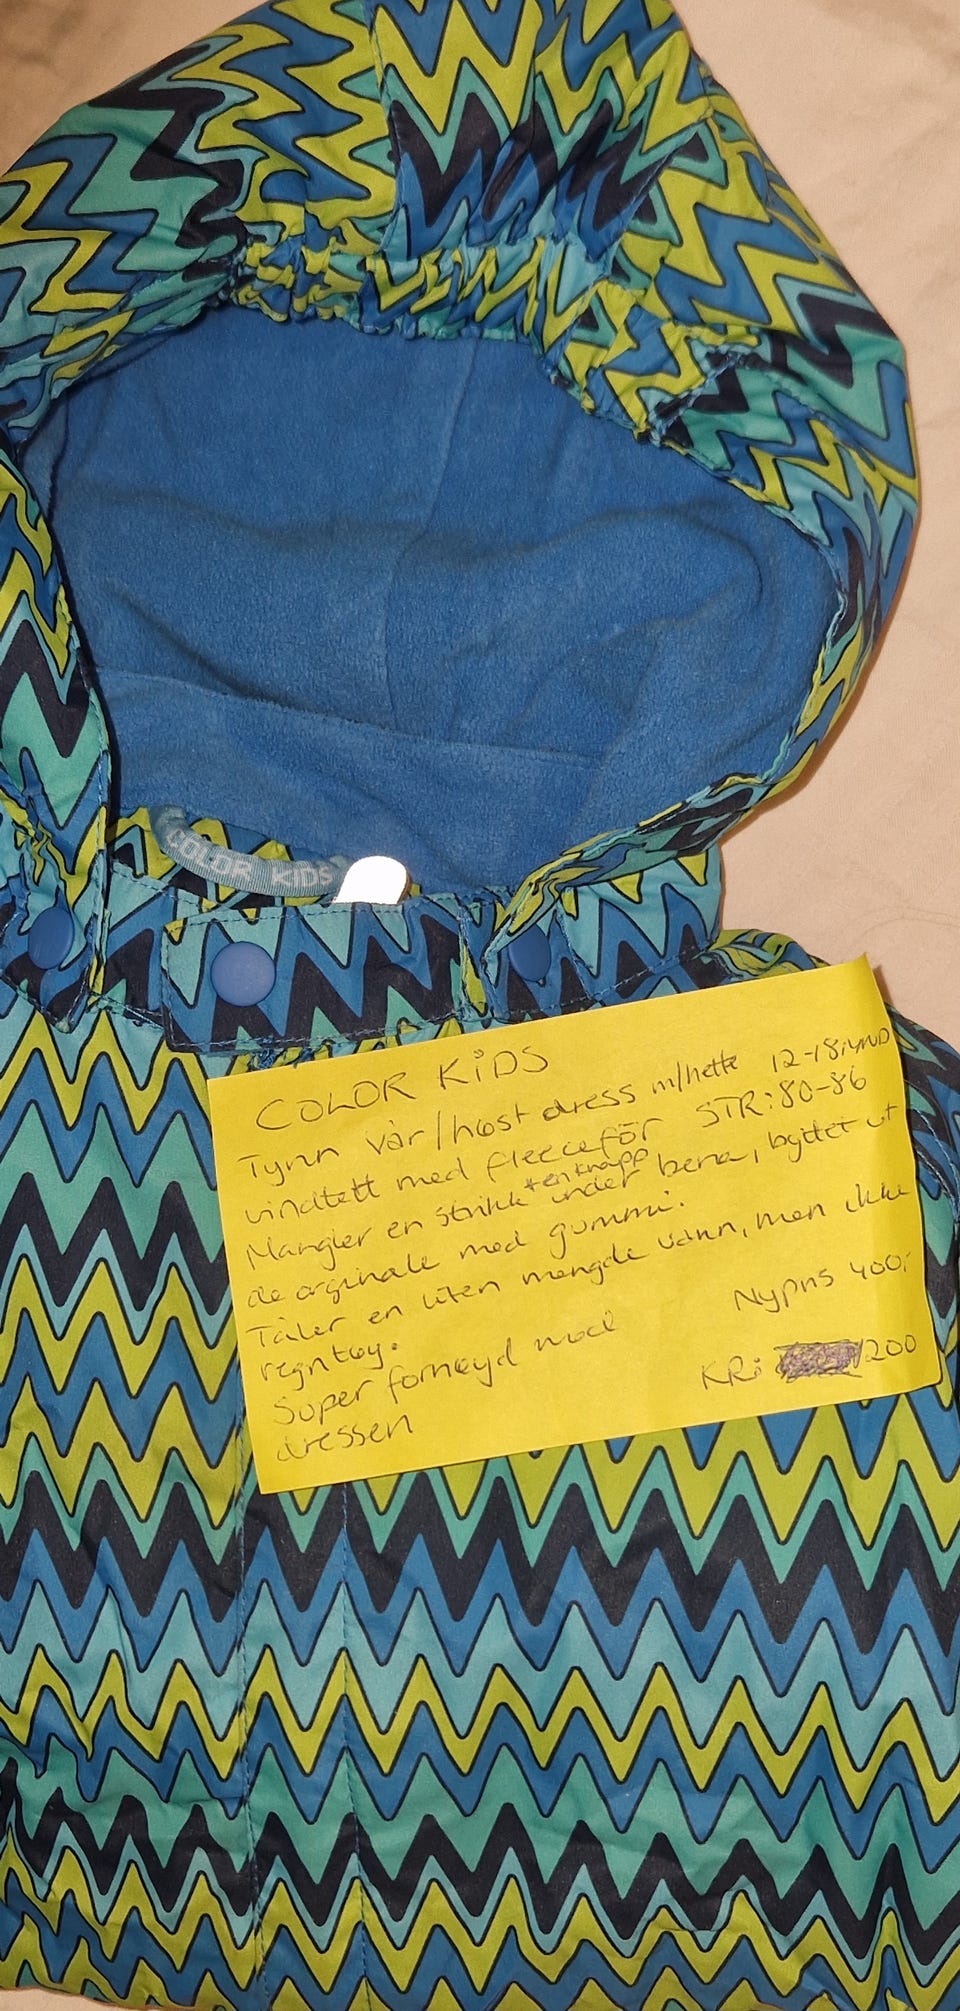 COLOR KIDS
COLOR KIDS
Tynn vår/høst dress m/hette 12-18mnd
vindtett med fleecefôr STR: 80-86
Mangler en strikk + en knapp under bena, byttet ut
de orginale med gummi.
Tåler en liten mengde vann, men ikke
regntøy.
Super fornøyd med
dressen
Nypris 400,-
KR: 200